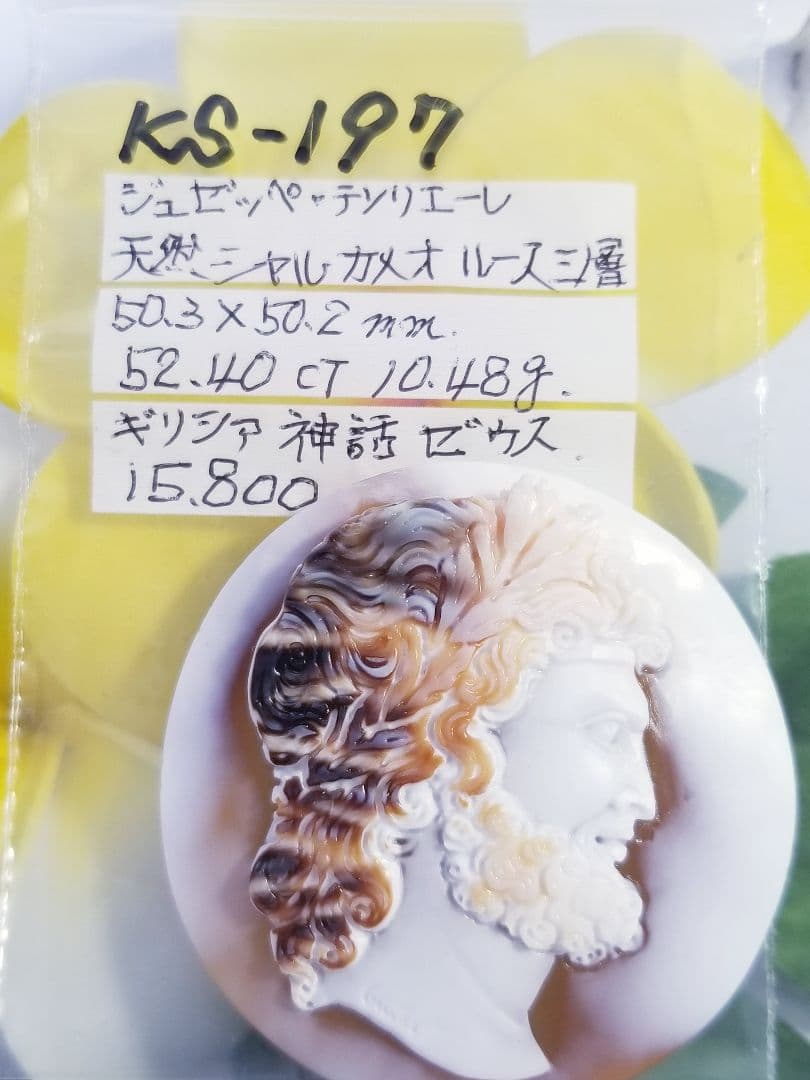 KS-197
ジュゼッペ・テソリエーレ
天然シャルカメオルース三層
50.3×50.2mm.
52.40 CT 10.48g.
ギリシア 神話 ゼウス.
15.800